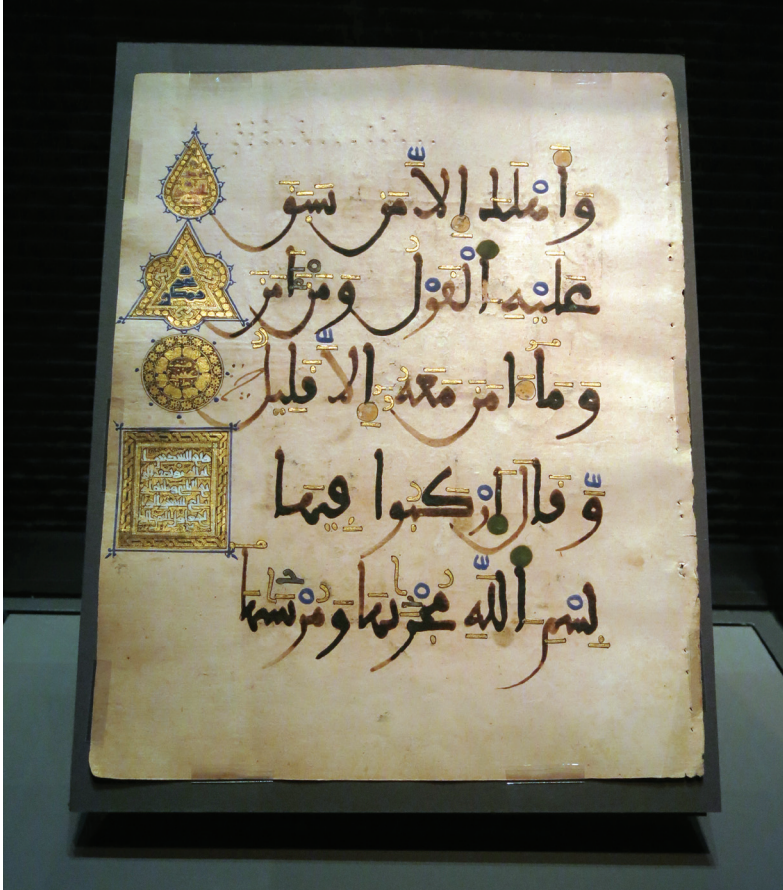 وأهلك إلا من سبق
عليه القول ومن امن
وما امن معه إلا قليل
وقال اركبوا فيها
بسم الله مجريها ومرسيها